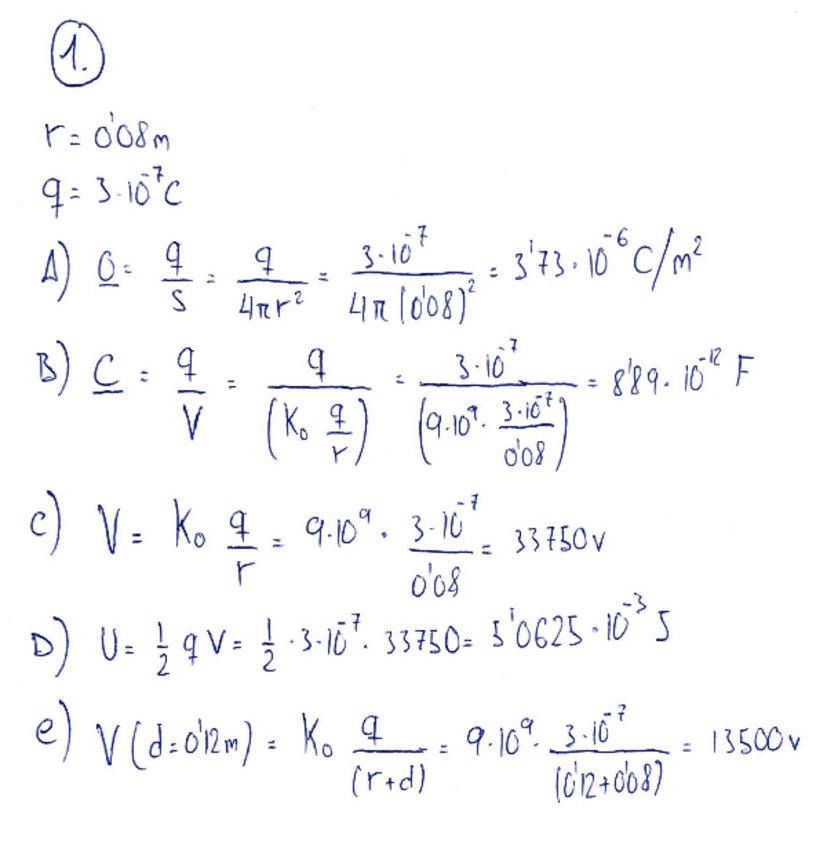 1.
r = 0'08m
q = 3·10^-7 C
A) σ = q/S = q/(4πr²) = 3·10^-7/(4π(0'08)²) = 3'73·10^-6 C/m²
B) C = q/V = q/(K₀ q/r) = 3·10^-7/(9·10^9 · 3·10^-7/0'08) = 8'89·10^-12 F
C) V = K₀ q/r = 9·10^9 · 3·10^-7/0'08 = 33750 v
D) U = 1/2 q V = 1/2 · 3·10^-7 · 33750 = 5'0625·10^-3 J
e) V(d=0'12m) = K₀ q/(r+d) = 9·10^9 · 3·10^-7/(0'12+0'08) = 13500 v